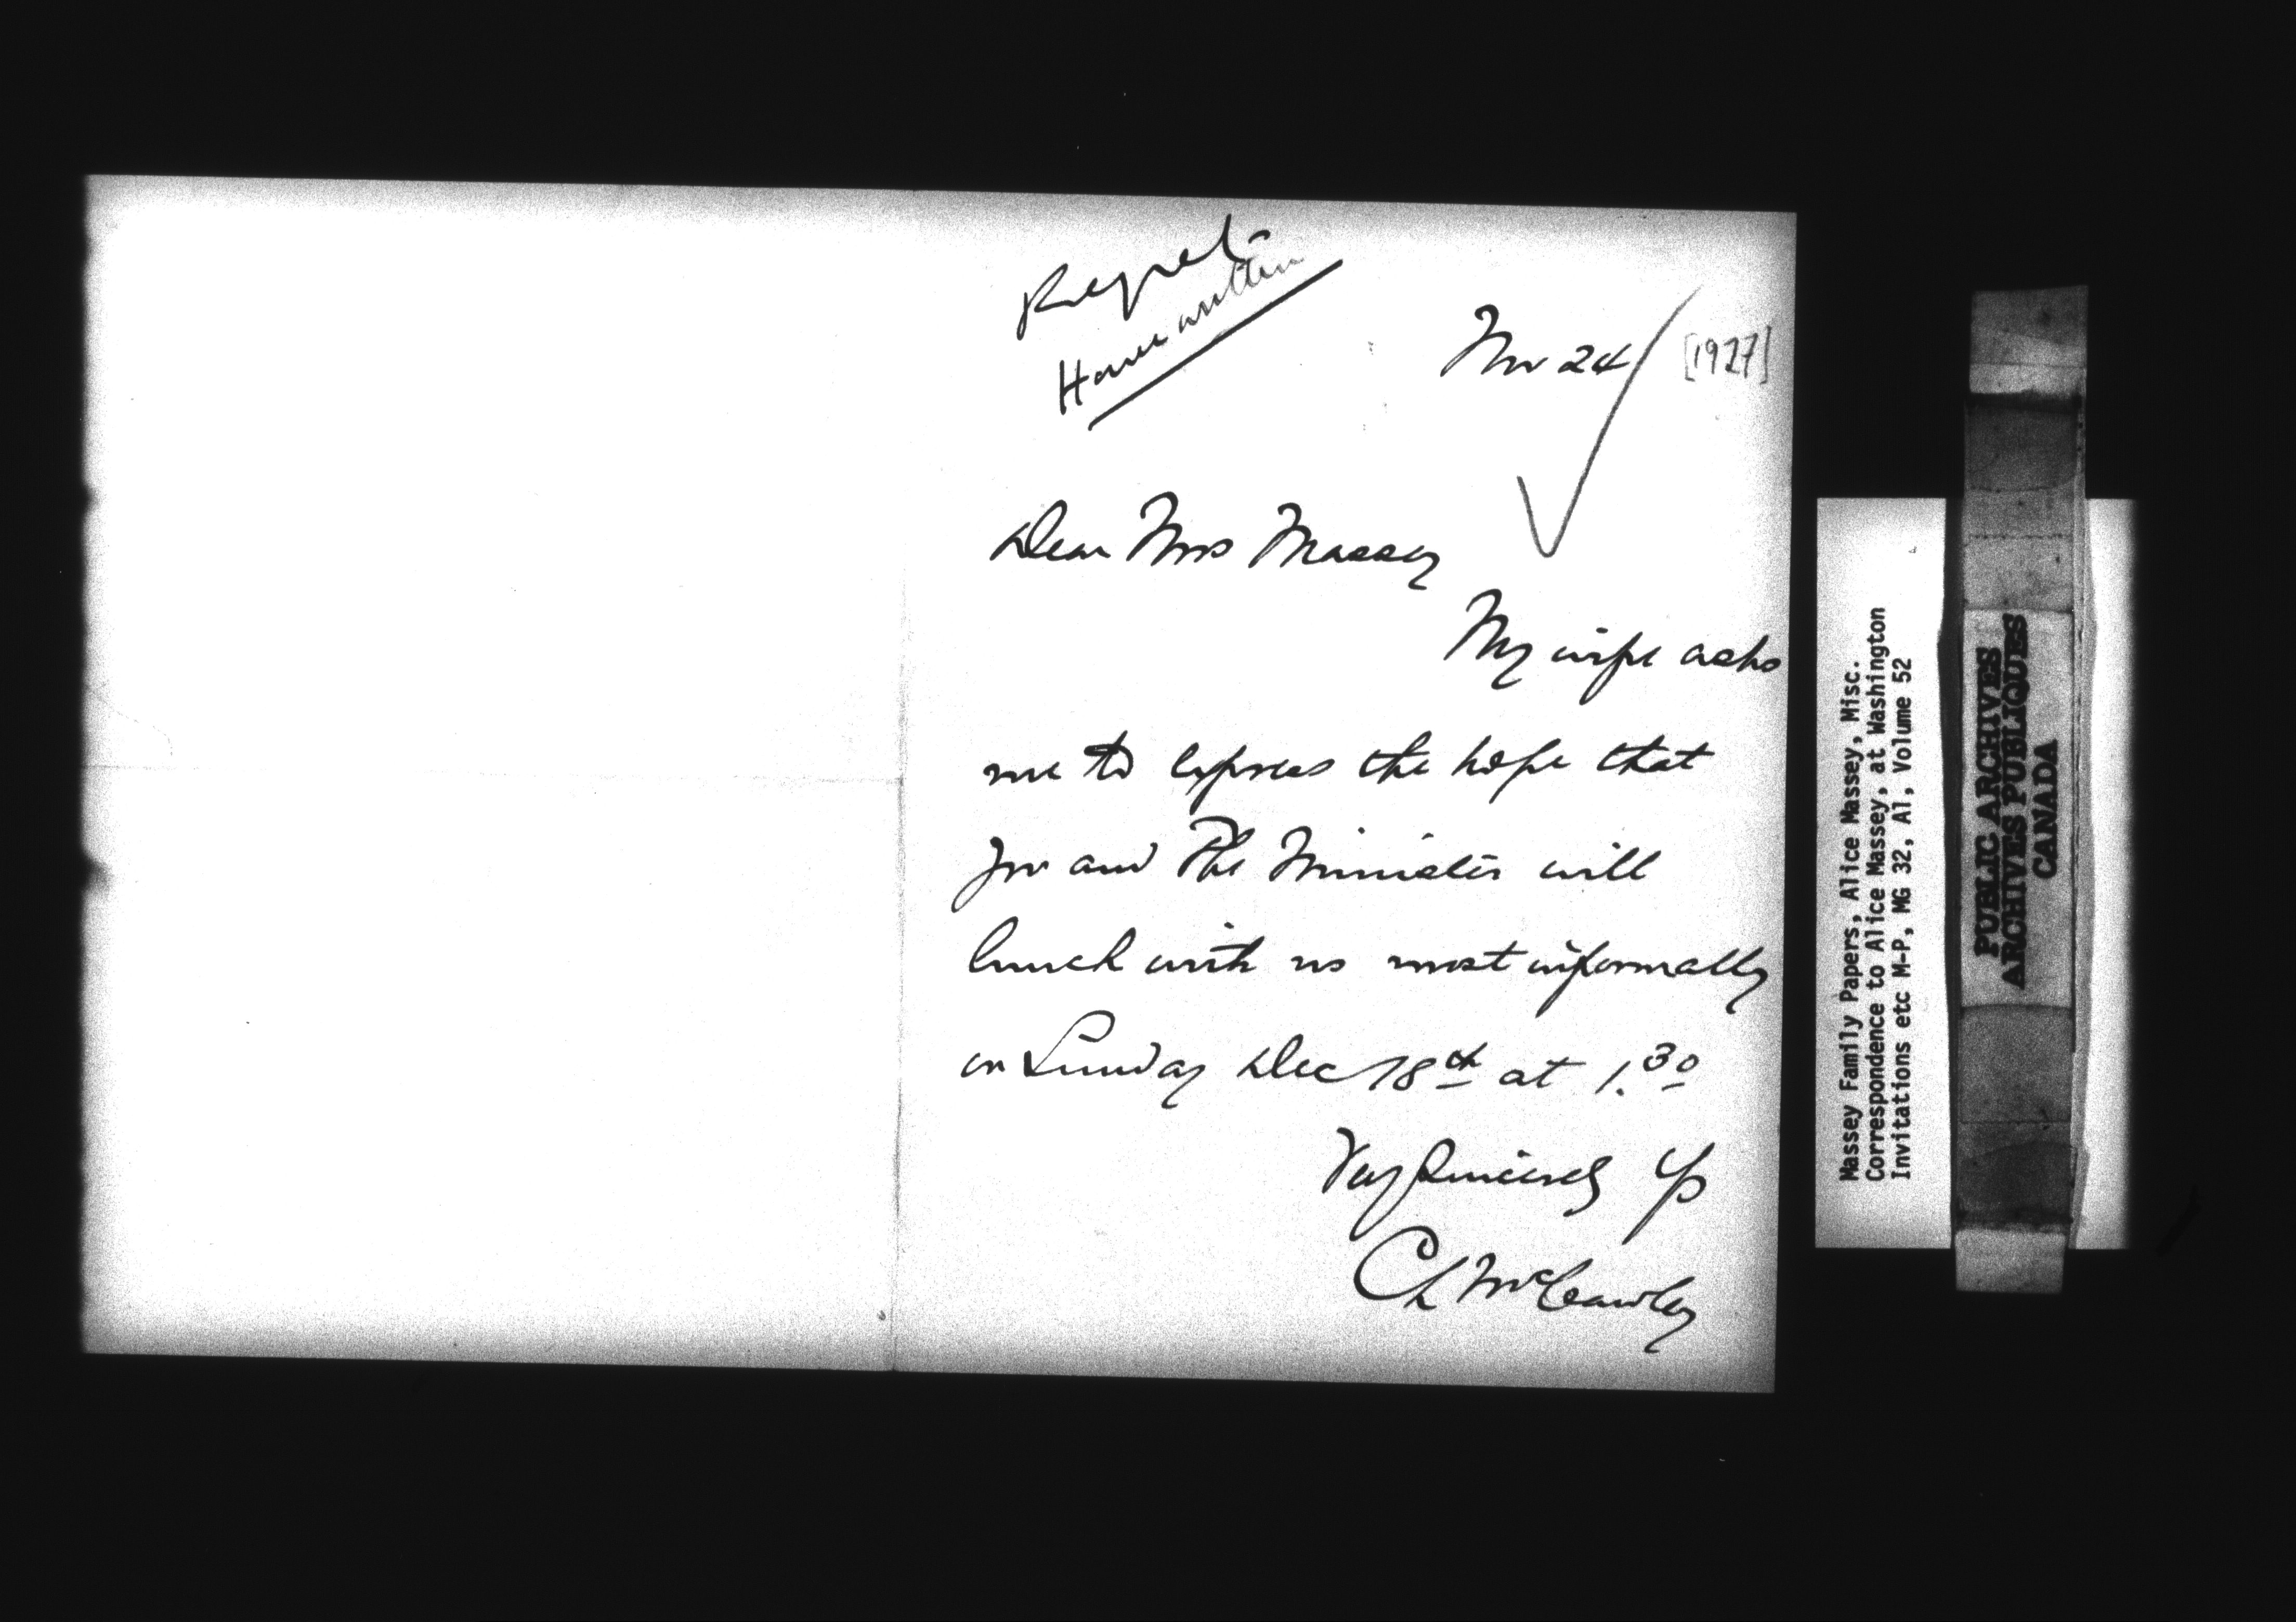 Regret
Have written
Nov 24 [1927]
Dear Mrs Massey
My wife asks
me to express the hope that
you and The Minister will
lunch with us most informally
on Sunday Dec 18th at 1.30
Very Sincerely Yrs
Ch McCawley
Massey Family Papers, Alice Massey, Misc.
Correspondence to Alice Massey, at Washington
Invitations etc M-P, MG 32, A1, Volume 52
PUBLIC ARCHIVES
ARCHIVES PUBLIQUES
CANADA